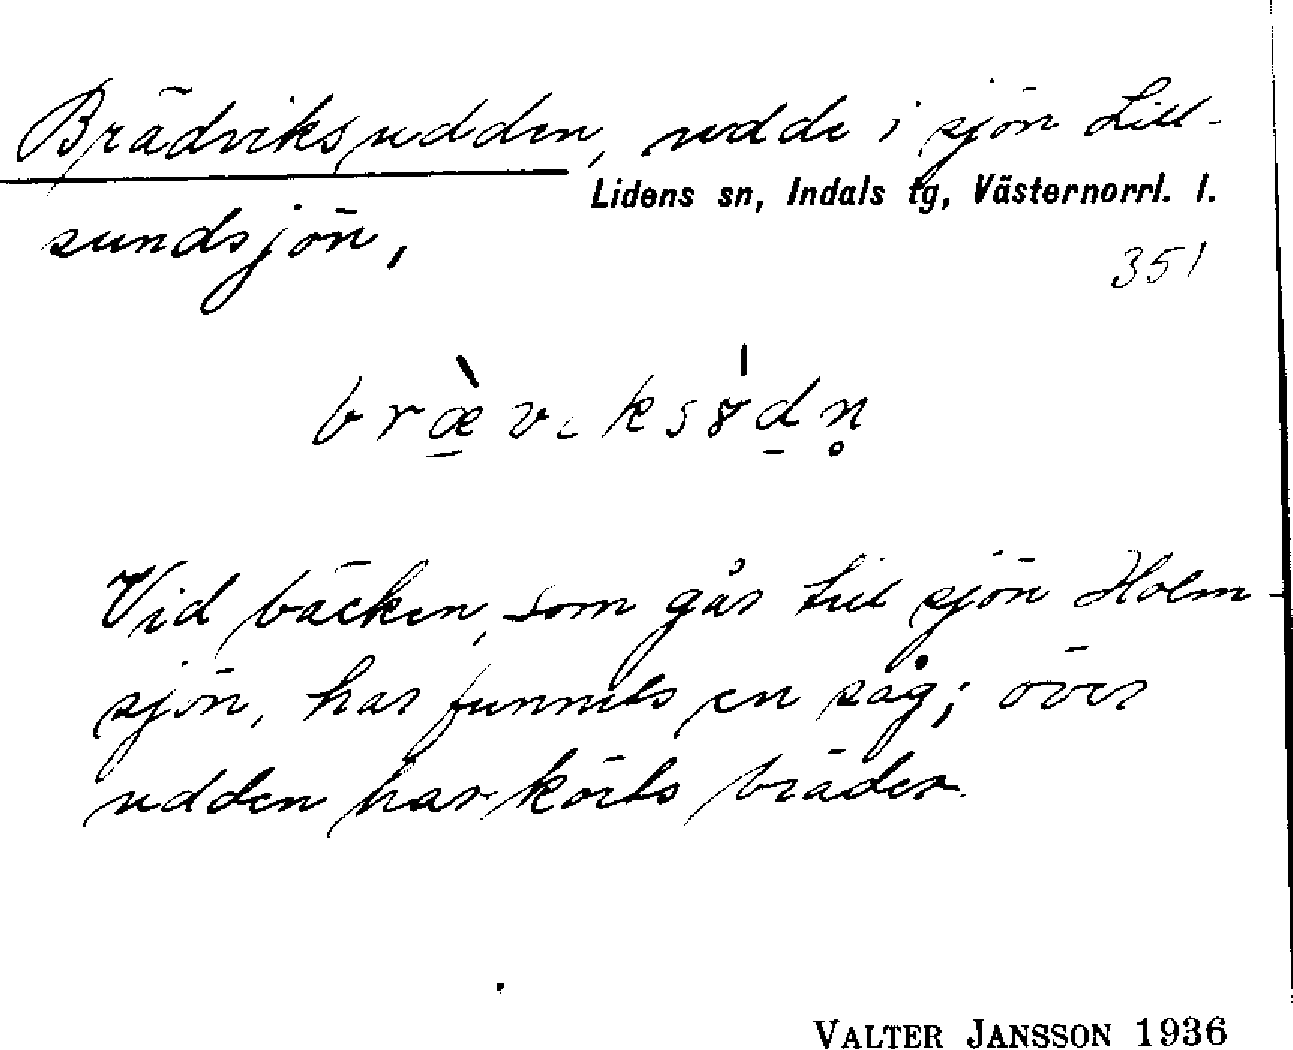 Brädviksudden, udde i sjön Lill-
Lidens sn, Indals tg, Västernorrl. l.
sundsjön,
351
bræ̀vɩksɤ́dn̥
Vid bäcken, som går till sjön Holm-
sjön, har funnits en såg; över
udden har körts bräder.
VALTER JANSSON 1936